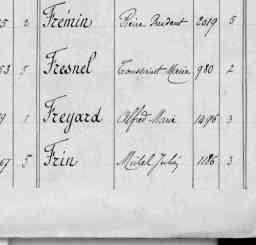 5 2 Frémin Pierre Prudent 2019 5
53 5 Fresnel Toussaint-Marie 980 2
9 1 Freyard Alfred-Marie 1496 3
67 5 Frin Michel Julien 1186 3